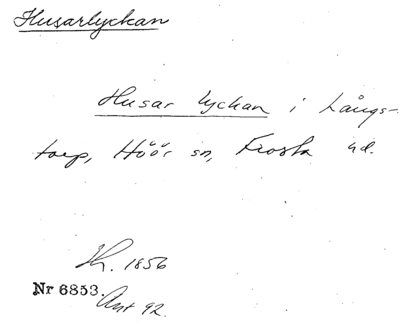 Husarlyckan
Husar lyckan i Långs-
torp, Höör sn, Frosta hd.
Kh. 1856
Nr 6853.
Ant 92.